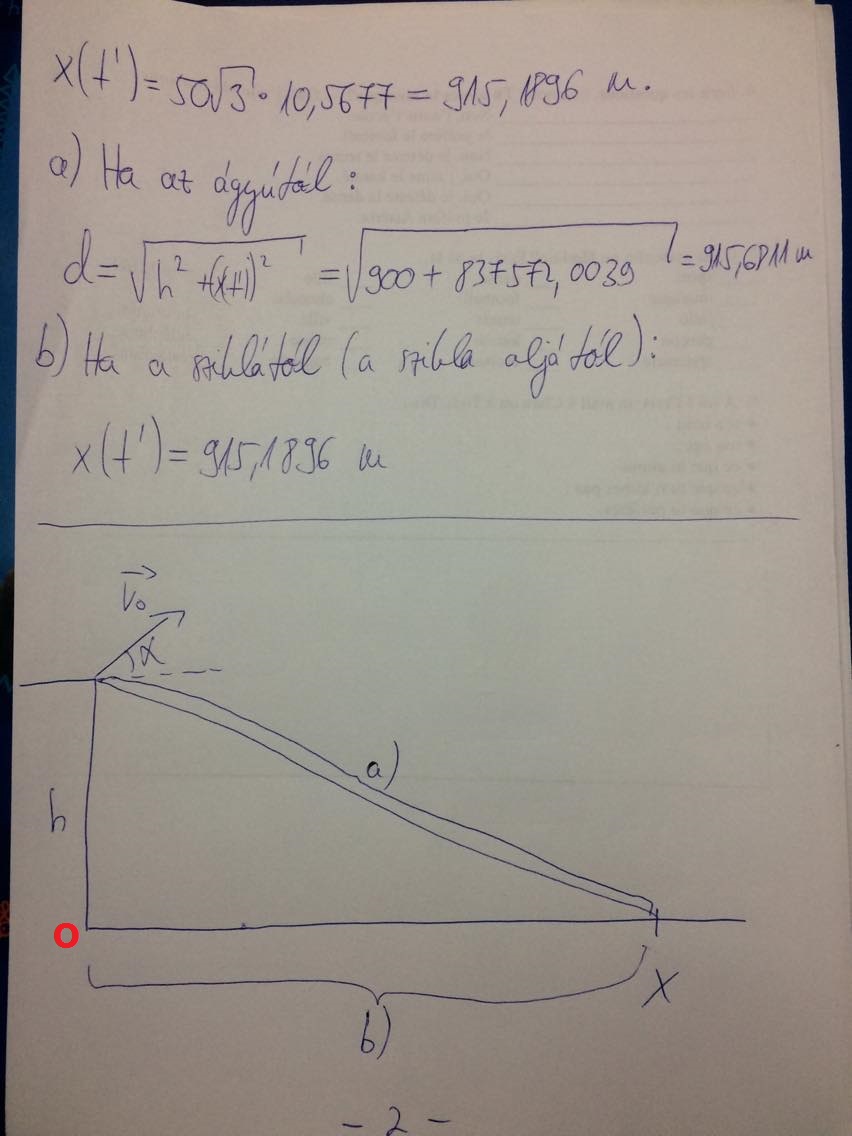 x(t') = 50√3 · 10,5677 = 915,1896 m.
a) Ha az ágyútól:
d = √(h² + (x+1)²) = √(900 + 837572,0039) = 915,6811 m
b) Ha a sziklától (a szikla aljától):
x(t') = 915,1896 m
V₀
α
a)
h
O
x
b)
- 2 -